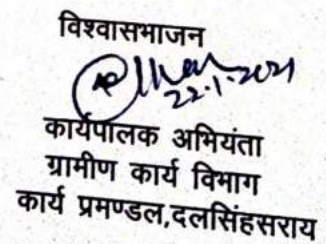 विश्वासभाजन
22.1.2021
कार्यपालक अभियंता
ग्रामीण कार्य विभाग
कार्य प्रमण्डल,दलसिंहसराय